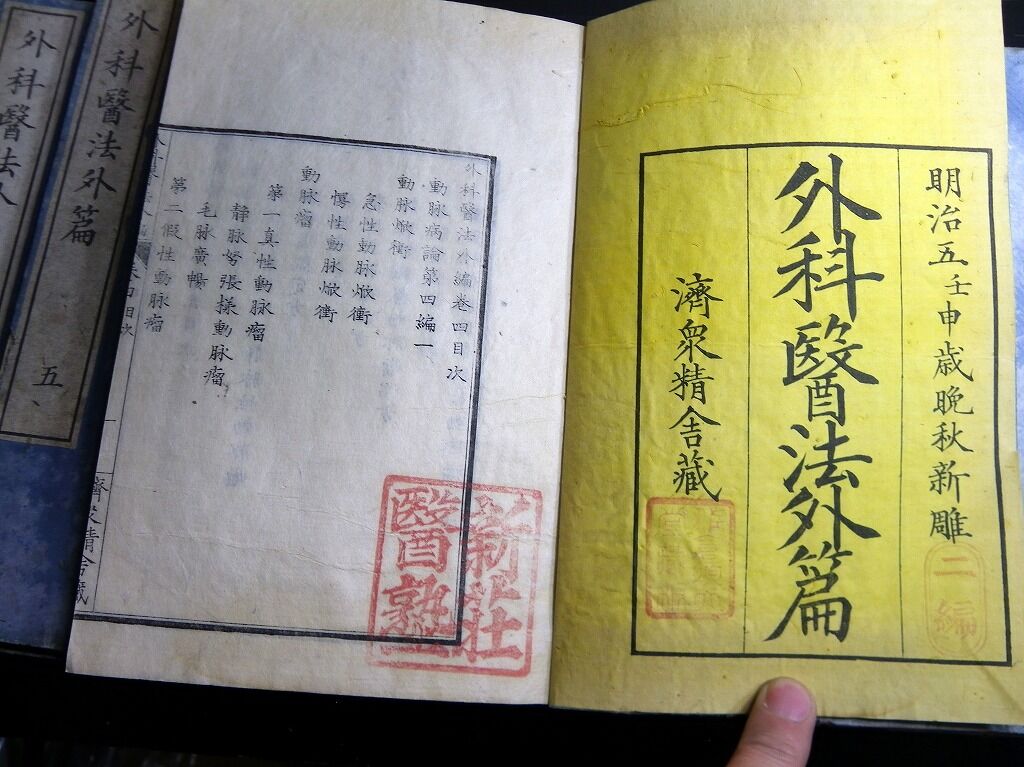 明治五壬申歳晩秋新雕
二編
外科醫法外篇
濟衆精舎藏
外科醫法外編巻四目次
動脉病論第四編一
動脉焮衝
急性動脉焮衝
慢性動脉焮衝
動脉瘤
第一真性動脉瘤
静脉努張様動脉瘤
毛脉廣暢
第二假性動脉瘤
新荘
醫塾
外科醫法外篇
五
外科醫法